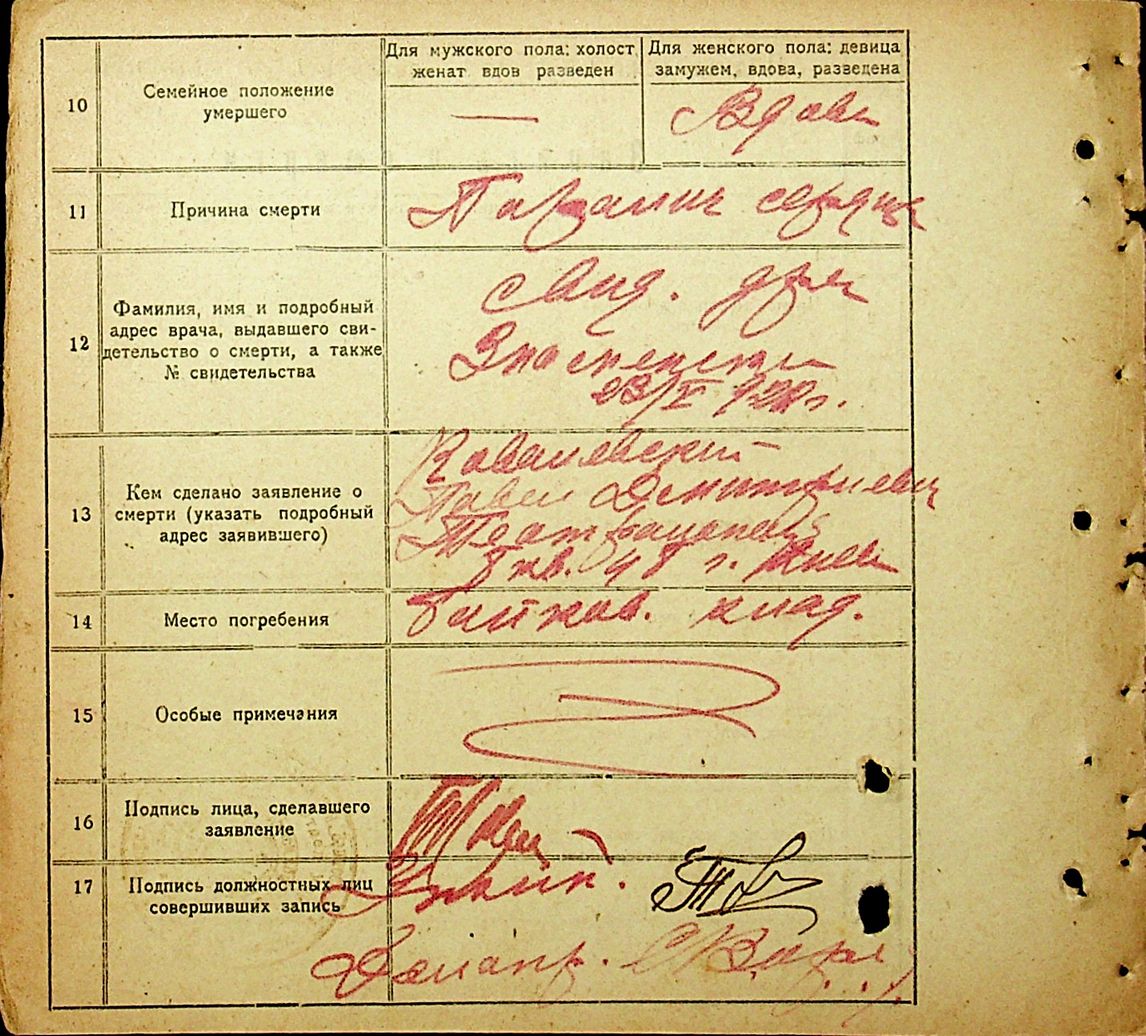 Для мужского пола: холост
женат вдов разведен
Для женского пола: девица
замужем, вдова, разведена
10
Семейное положение
умершего
—
Вдова
11
Причина смерти
Паралич сердца
12
Фамилия, имя и подробный
адрес врача, выдавшего сви-
детельство о смерти, а также
№ свидетельства
свид. врач
23/V
13
Кем сделано заявление о
смерти (указать подробный
адрес заявившего)
Ковалевский
Павел Дмитриевич
кв. 48 г. Киев
14
Место погребения
Байков. клад.
15
Особые примечания
16
Подпись лица, сделавшего
заявление
17
Подпись должностных лиц
совершивших запись